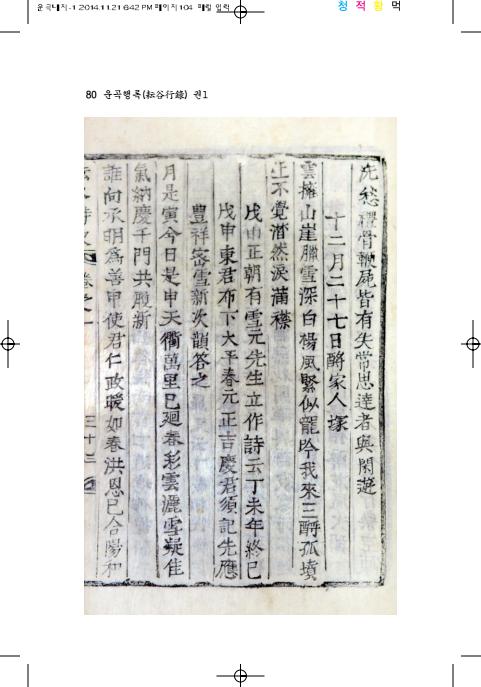 운곡대지-1 2014.11.21 6:42 PM 페이지104
청 적 황 먹
80 운곡행록(耘谷行錄) 권1
骨鞭屍皆有失常思達者與閑遊
十二月二十七日酹家人塚
雲擁山崖臘雪深白楊風緊似龍吟我來三酹孤墳
正不覺潸然淚滿襟
戊申正朝有雪元先生立作詩云丁未年終已
戊申東君布下大平春元正吉慶君須記先應
豊祥密雪新次韻答之
月是寅今日是申天衢萬里已廻春彩雲灑雪凝佳
氣納慶千門共履新
誰向承明爲善申使君仁政暖如春洪恩已合陽和
卷之一
三十三